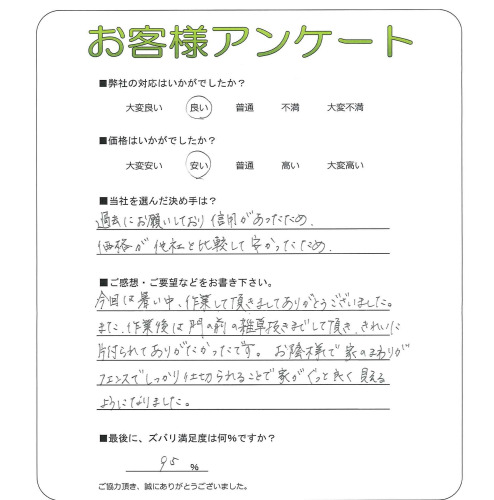 お客様アンケート
■弊社の対応はいかがでしたか？
大変良い 良い 普通 不満 大変不満
■価格はいかがでしたか？
大変安い 安い 普通 高い 大変高い
■当社を選んだ決め手は？
過去にお願いしており信用があったため、
価格が他社と比較して安かったため、
■ご感想・ご要望などをお書き下さい。
今回は暑い中、作業して頂きましてありがとうございました。
また、作業後は門の前の雑草抜きまでして頂き、きれいに
片付られてありがたかったです。お陰様で家のまわりが
フェンスでしっかり仕切られることで家がぐっと良く見える
ようになりました。
■最後に、ズバリ満足度は何%ですか？
95 %
ご協力頂き、誠にありがとうございました。